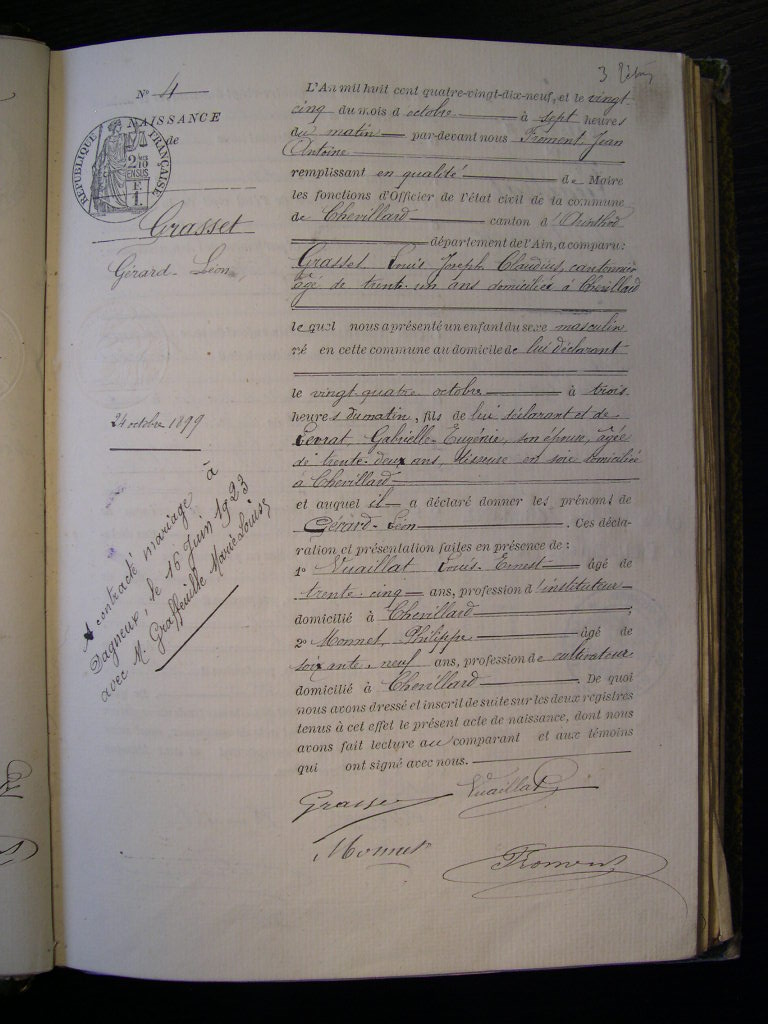 3
Nº 4
NAISSANCE
de
RÉPUBLIQUE FRANÇAISE
2/10
EN SUS
E
1.
Grasset
Gérard-Léon
24 octobre 1899
A contracté mariage à
Dagneux, le 16 Juin 1923
avec M. Graffeuille Marie Louise
L'An mil huit cent quatre-vingt-dix-neuf, et le vingt-
cinq du mois d'octobre à sept heures
du matin par-devant nous Froment, Jean
Antoine
remplissant en qualité de Maire
les fonctions d'Officier de l'état civil de la commune
de Chevillard canton d
département de l'Ain, a comparu:
Grasset Louis Joseph Claudius, cantonnier
âgé de trente-un ans domicilié à Chevillard
lequel nous a présenté un enfant du sexe masculin
né en cette commune au domicile de lui déclarant
le vingt-quatre octobre à trois
heures du matin, fils de lui déclarant et de
Levrat Gabrielle-Eugénie, son épouse, âgée
de trente-deux ans, tisseuse en soie domiciliée
à Chevillard
et auquel il a déclaré donner les prénoms de
Gérard-Léon. Ces décla-
ration et présentation faites en présence de:
1º Vuaillat Louis-Ernest âgé de
trente-cinq ans, profession d'instituteur
domicilié à Chevillard;
2º Monnet, Philippe âgé de
soixante-neuf ans, profession de cultivateur
domicilié à Chevillard. De quoi
nous avons dressé et inscrit de suite sur les deux registres
tenus à cet effet le présent acte de naissance, dont nous
avons fait lecture au comparant et aux témoins
qui ont signé avec nous.
Grasset Vuaillat
Monnet
Froment